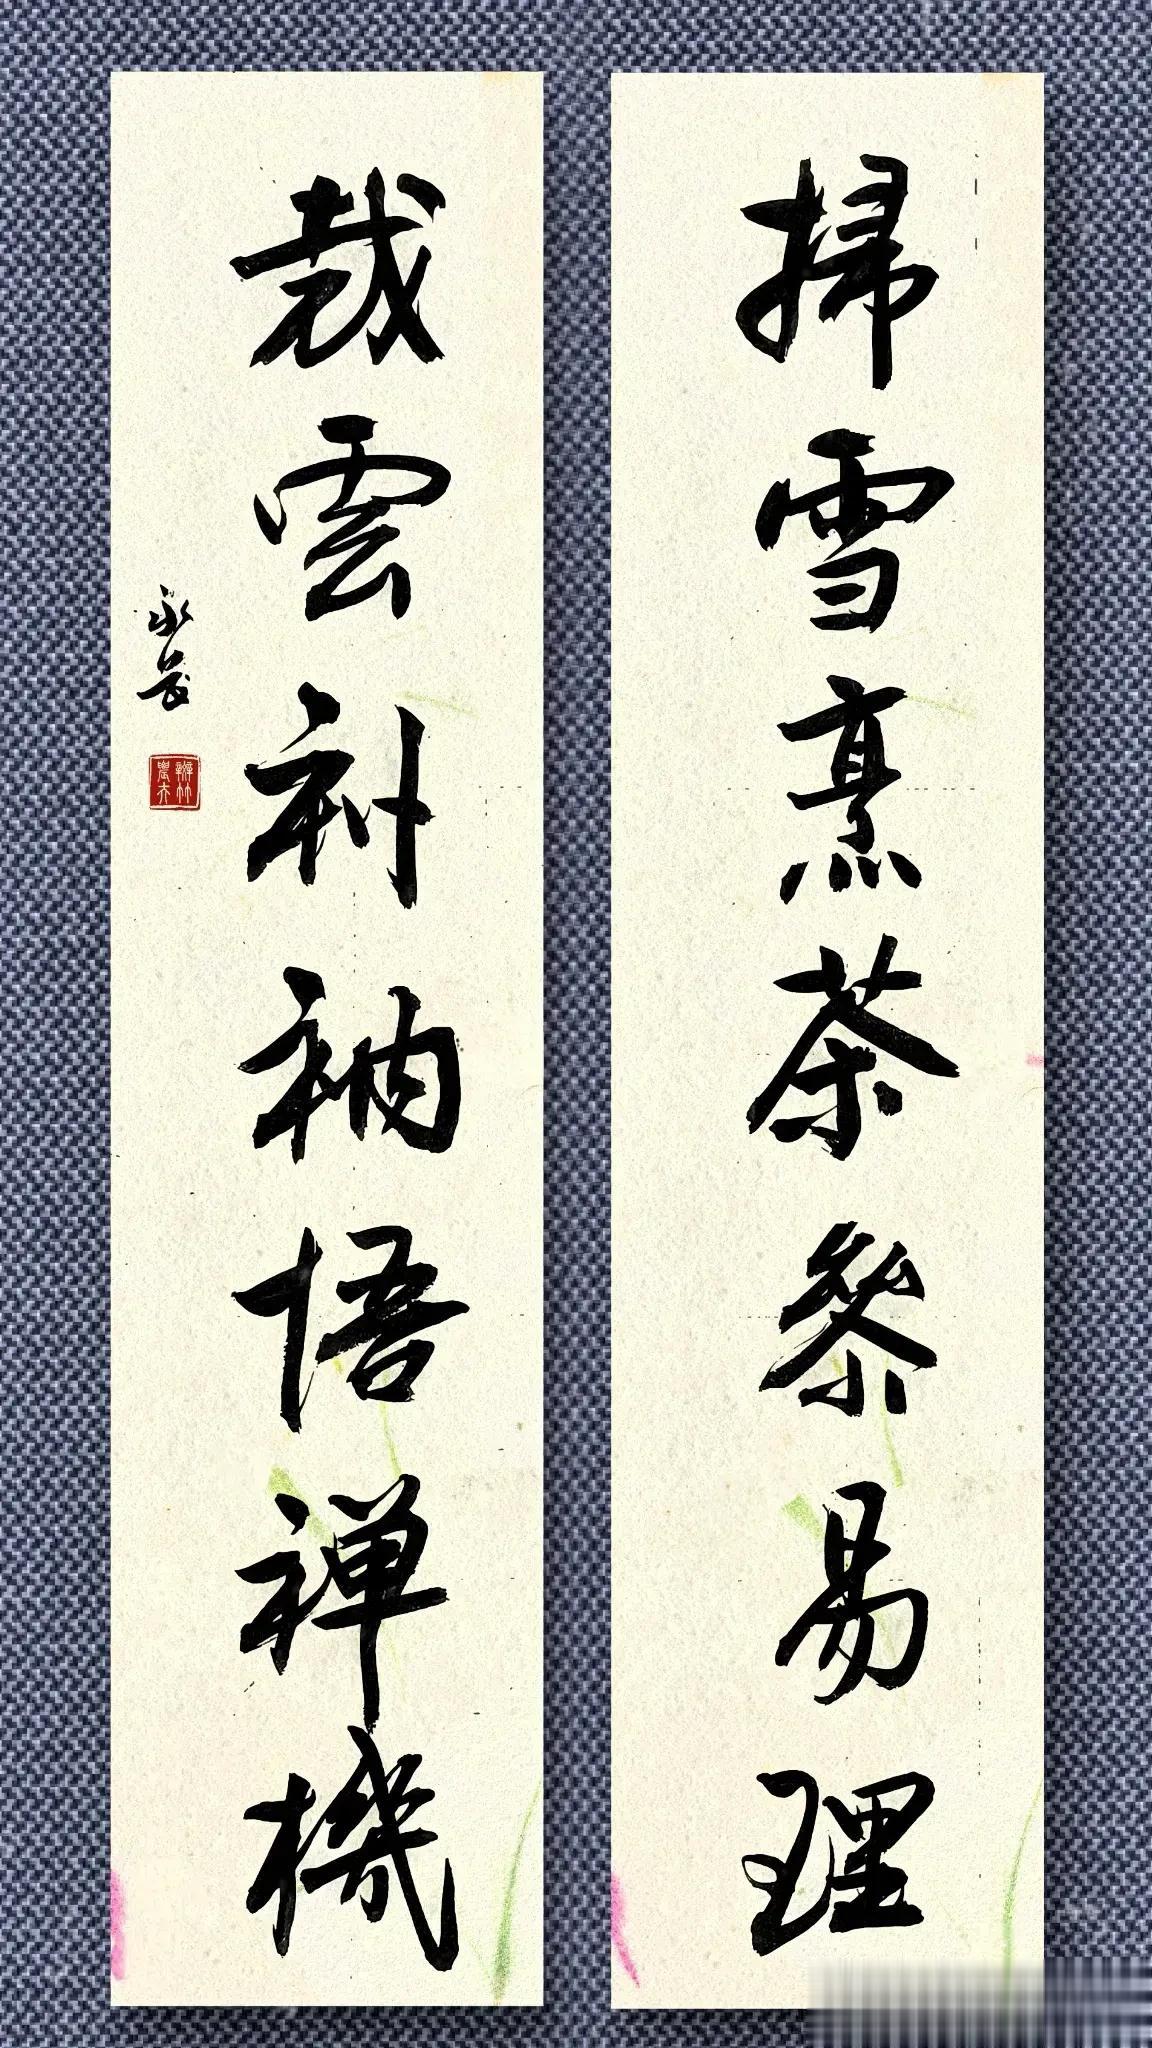 掃雪烹茶參易理
裁雲補衲悟禪機
永長